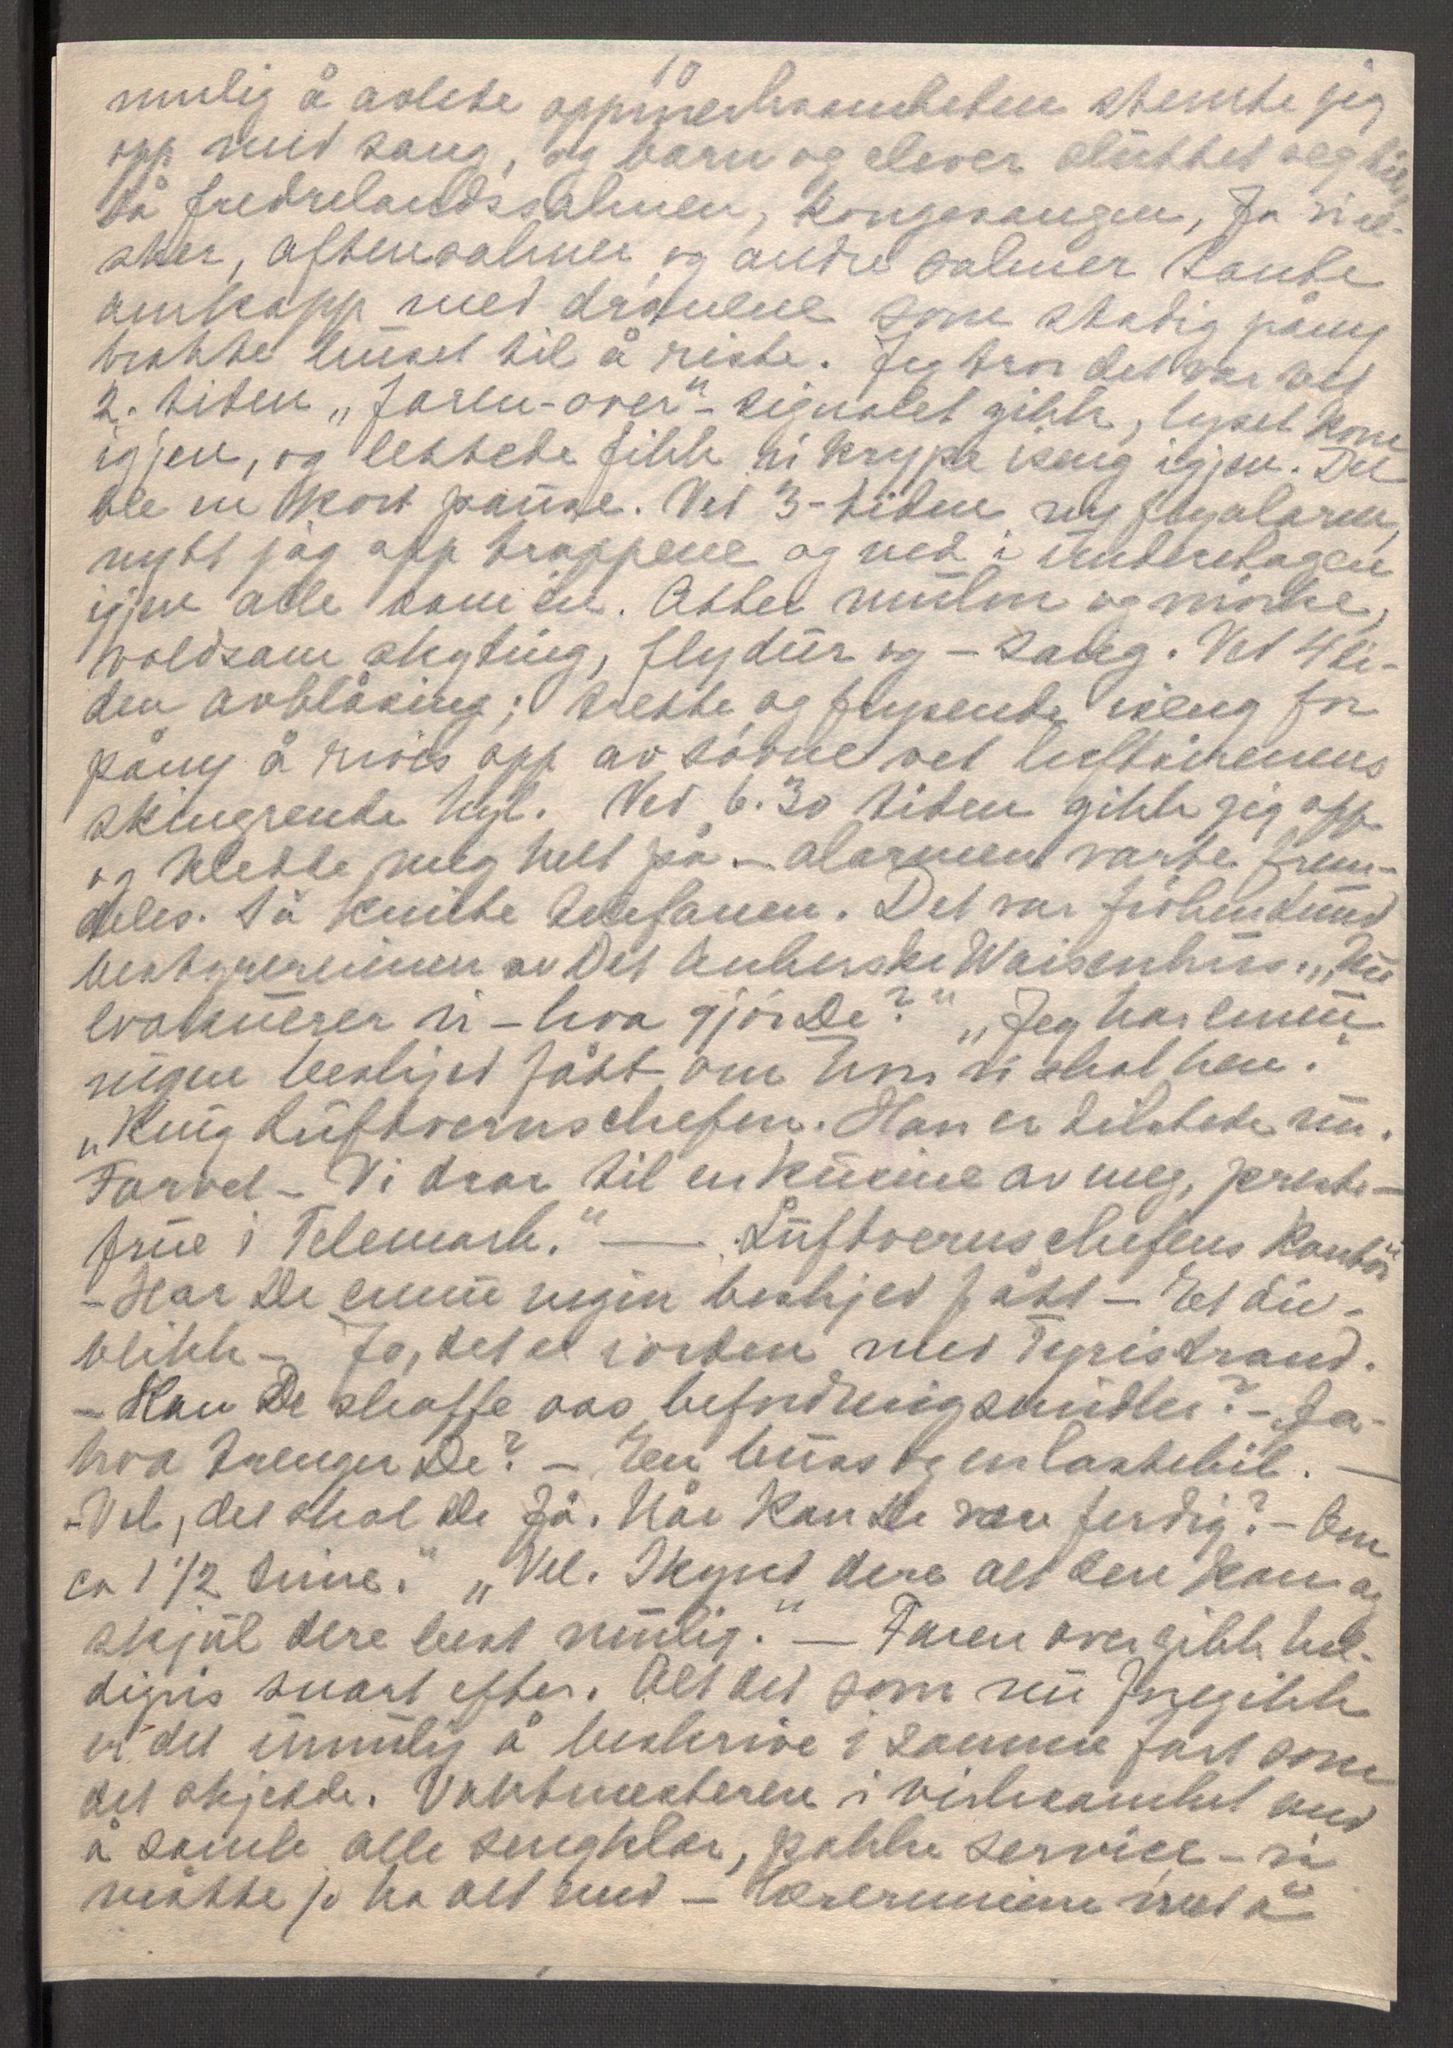 10
mulig å avlede oppmerksomheten stemte jeg
opp med sang, og barn og elever sluttet seg til,
så fedrelandssalmen, kongesangen, Ja vi el-
sker, aftensalmer og andre salmer lante
omkapp med drønene som stadig påny
bratte huset til å riste. Jeg tror det var ved
2. tiden „faren-over"- signalet gikk, lyset kom
igjen, og lettete fikk vi krype iseng igjen. Det
ble en kort pause. Ved 3-tiden ny flyalarm,
nytt jag opp trappene og ned i underetagen
igjen alle som en. Atter mulm og mörke,
voldsom skyting, flydur og – sang. Ved 4 ti-
den avblåsing; trette og frysende iseng for
påny å rives opp av søvne ved luftsirenens
skingrende hyl. Ved 6.30 tiden gikk jeg opp
og kledte meg helt på – alarmen varte frem-
deles. Så kimte telefonen. Det var frøken Lund
bestyrerinnen av Det Ankerske Waisenhus. „Nu
evakuerer vi – hva gjör De?" „Jeg har ennu
ingen beskjed fått om hvor vi skal hen."
„Ring Luftvernschefen. Han er tilstede nu.
Farvel – Vi drar til en kusine av meg, preste-
frue i Telemark." — „Luftvernschefens kontor"
– Har De ennu ingen beskjed fått – Et øie-
blikk – Jo, det er iorden med Tyristrand.
– Kan De skaffe oss befordringsmidler? – Ja-
hva trenger De? – En buss og en lastebil. —
– Vel, det skal De få. Når kan De være ferdig? – Om
ca 1 1/2 time." „Vel. Skynd dere alt dere kan og
skjul dere best mulig." — Faren over gikk hel-
digvis snart efter. Alt det som nu foregikk
er det umulig å beskrive i samme fart som
det skjedde. Vaktmesteren i virksomhet med
å samle alle sengklær, pakke service – vi
måtte jo ha alt med – Lærerinnene med å